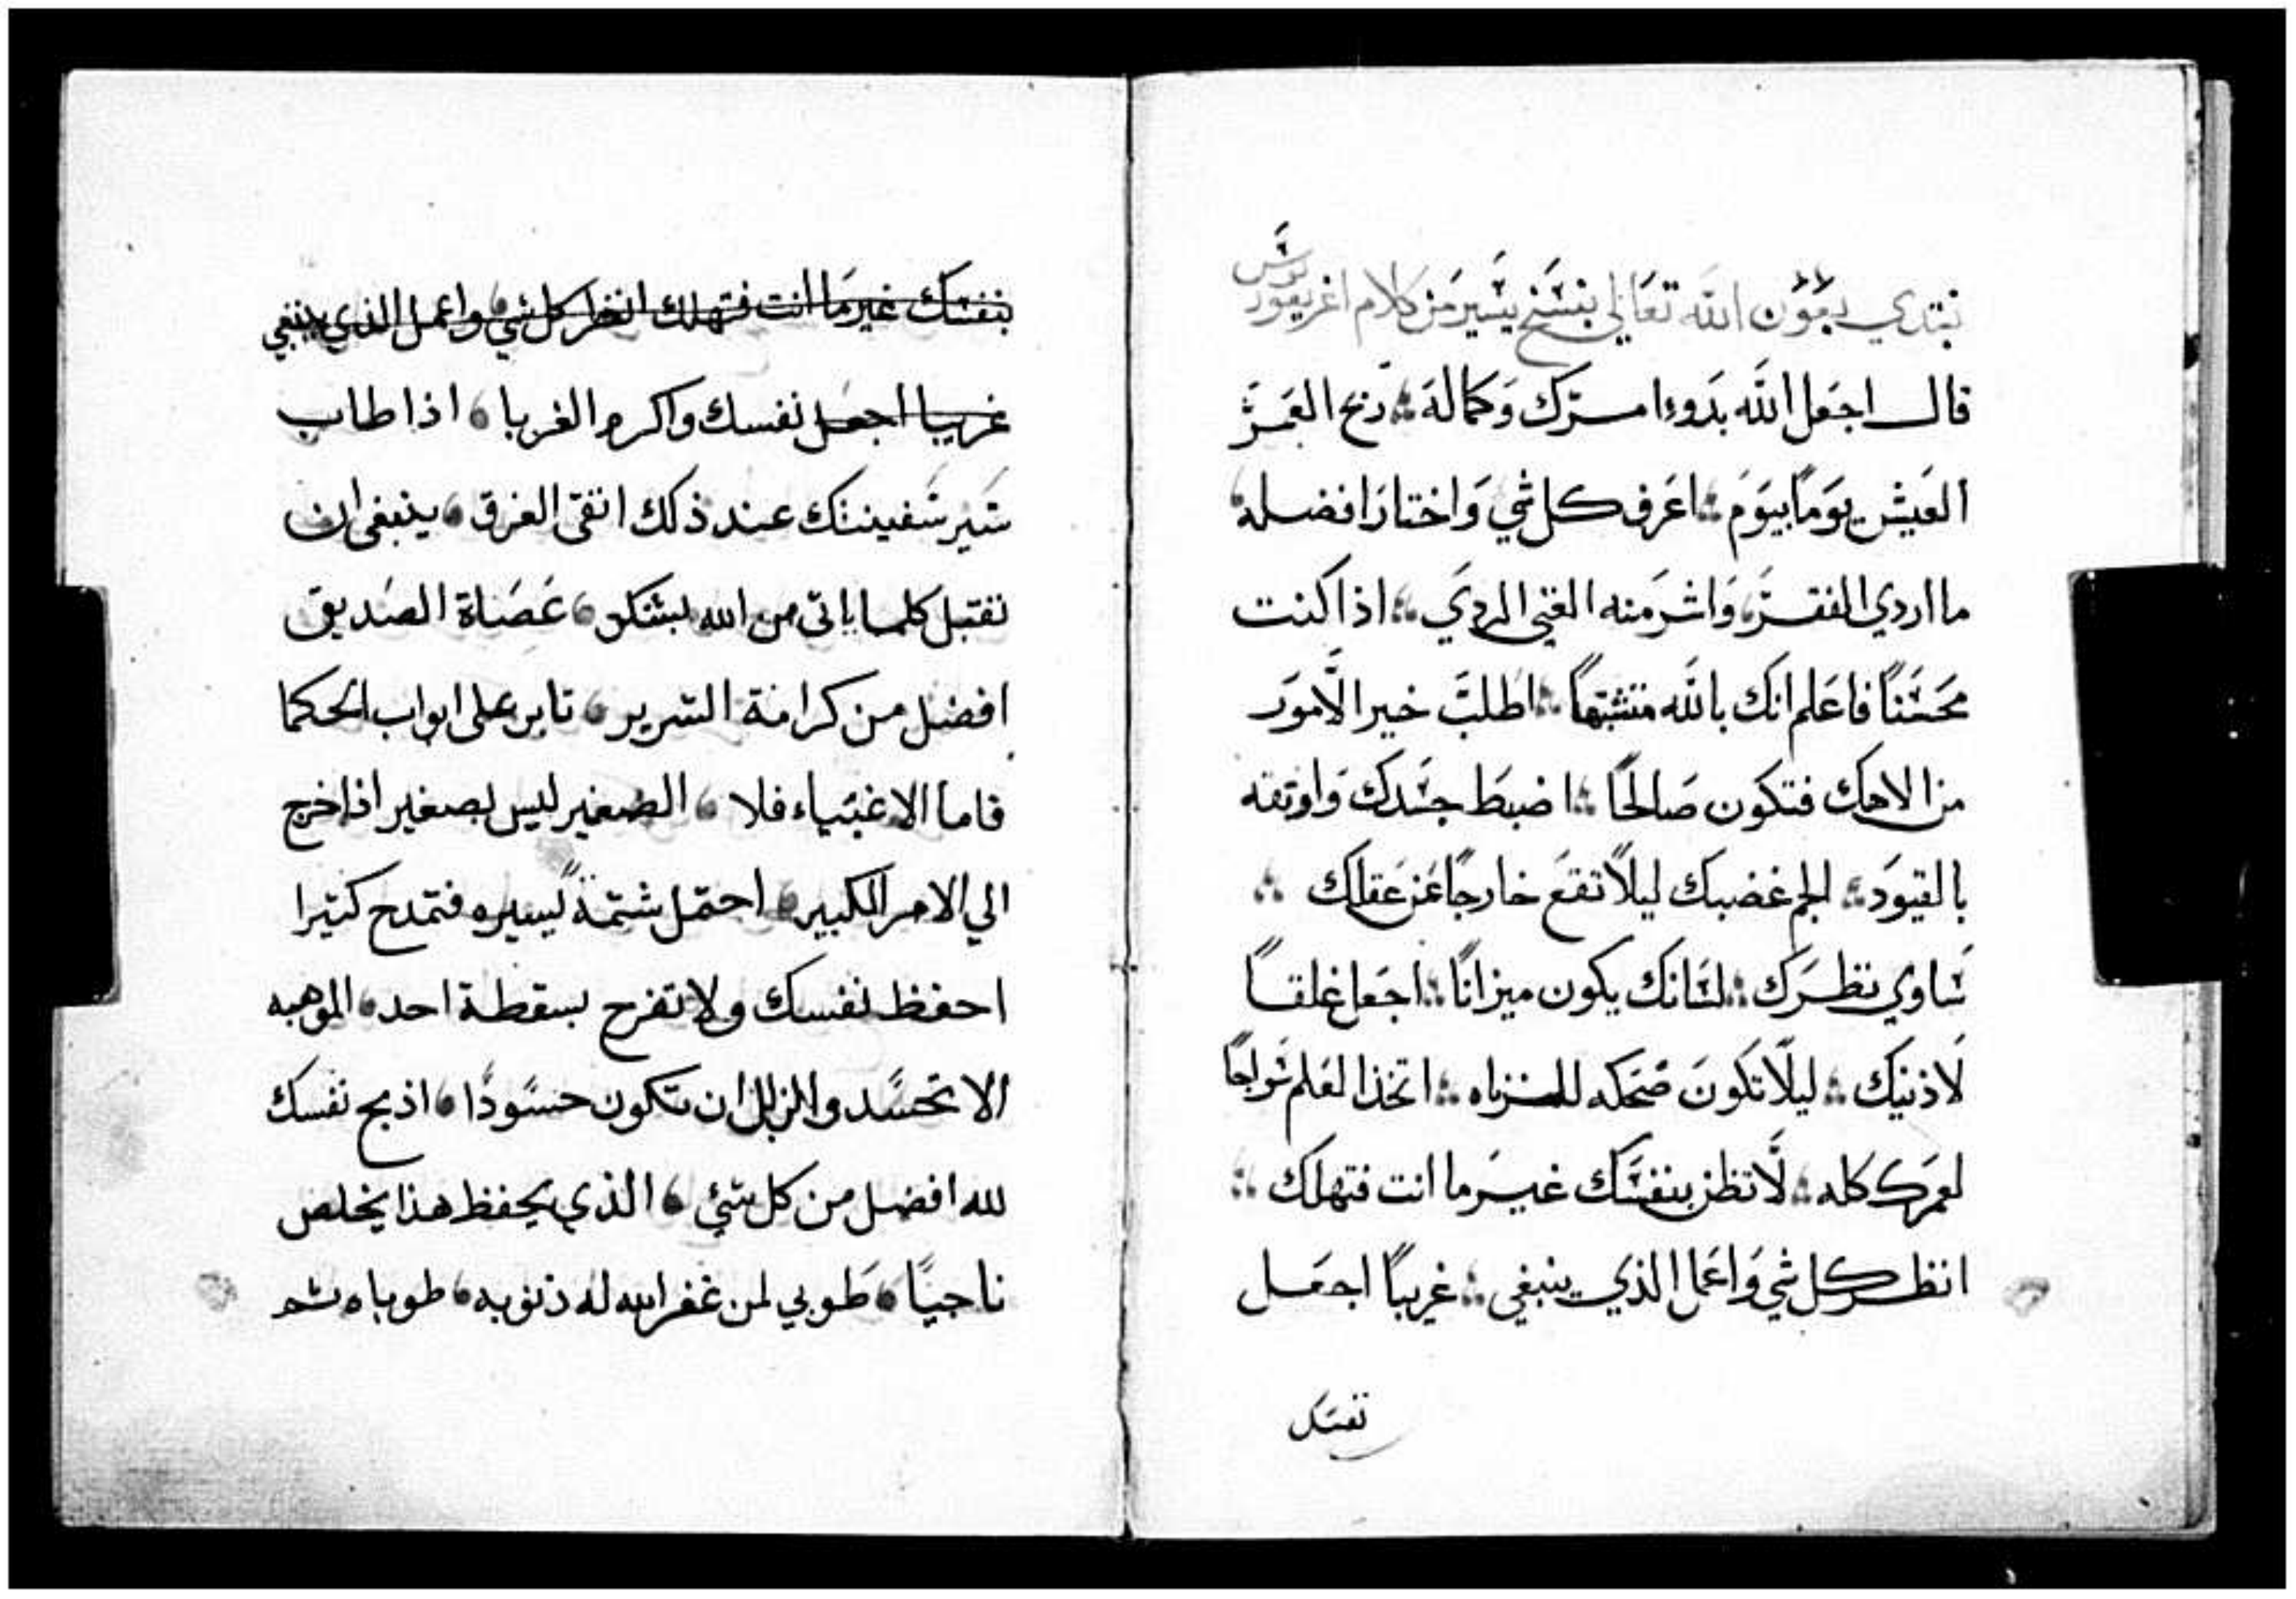 نبتدي بعون الله تعالي بنسخ يسير من كلام اغريغوريوس
قال اجعل الله بدوء امرك وكماله ربح العمر
العيش يوماً بيوم اعرف كل شي واختار افضله
ما اردي الفقر واشر منه الغني الردي اذا كنت
محسناً فاعلم انك بالله متشبهاً اطلب خير الامور
من الاهك فتكون صالحاً اضبط جسدك واوثقه
بالقيود الجم غضبك ليلا تقع خارجاً عن عقلك
ساوي نظرك لسانك يكون ميزاناً اجعل غلقاً
لاذنيك ليلا تكون ضحكه للزناه اتخذ العلم سراجاً
لعمرك كله لا تظن بنفسك غير ما انت فتهلك
انظر كل شي واعمل الذي ينبغي غريباً اجعل
نفسك
بنفسك غير ما انت فتهلك انظر كل شي واعمل الذي ينبغي
غريبا اجعل نفسك واكرم الغربا اذا طاب
سير سفينتك عند ذلك اتقى الغرق ينبغى ان
تقتبل كلما ياتى من الله بشكر عصاة الصديق
افضل من كرامة الشرير تابر على ابواب الحكما
فاما الاغنياء فلا الصغير ليس بصغير اذا خرج
الي الامر الكبير احتمل شتمة يسيره فتمدح كتيرا
احفظ نفسك ولا تفرح بسقطة احد الموهبه
الا تحسد والزلل ان تكون حسودًا اذبح نفسك
لله افضل من كل شئ الذي يحفظ هذا يخلص
ناجيًا طوبي لمن غفر الله له ذنوبه طوباه تم